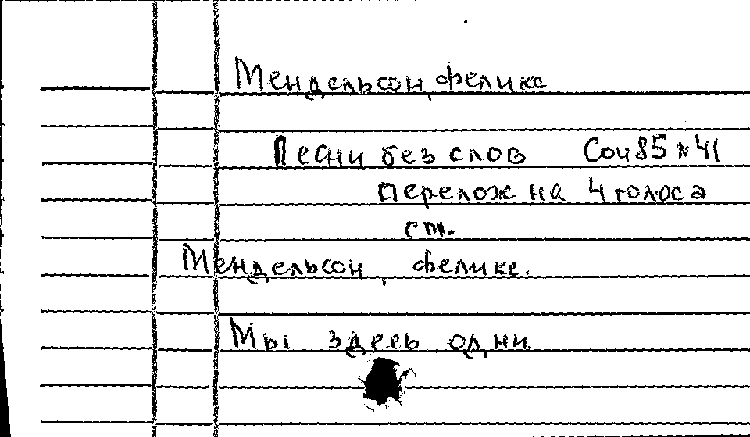 Мендельсон, феликс
Песни без слов Соч 85 № 41
перелож на 4 голоса
ст.
Мендельсон, феликс.
Мы здесь одни